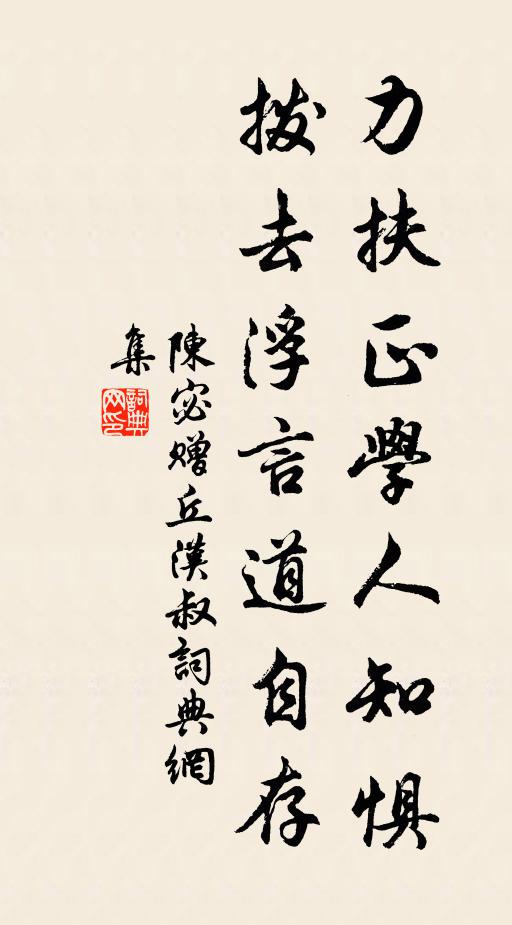 力扶正學人知懼
拨去浮言道自存
陳宓贈丘漢叔詞典網
集
詞典網印